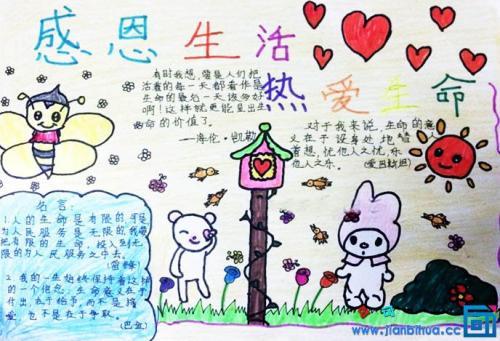 感恩生活
热爱生命
有时我想,要是人们把
活着的每一天都看作是
生命的最后一天该多好
啊!这样就更能显出生
命的价值了。
——海伦·凯勒
对于我来说,生命的意
义在于设身处地替
人着想,忧他人之忧,乐
他人之乐。(爱因斯坦)
名言:
1.人的生命是有限的,可是
为人民服务是无限的,我要
把有限的生命,投入到无
限的为人民服务之中去。
(雷锋)
2、我的一生始终保持着这样
的一个信念:生命的意义在于
付出,在于给予,而不是接
受,也不是在于争取。
(巴金)
www.jianbihua.cc